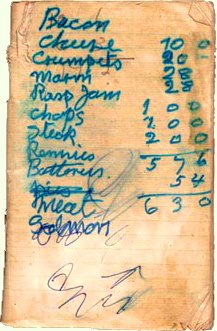 Bacon
Cheese 70 0
Crumpets
Marm
Rasp Jam
Chops 1 0 0
Steak 2 0 0
Rennies 2 0 0
Batterys. 5 7 6
5 4
Meat 6 3 0
Salmon